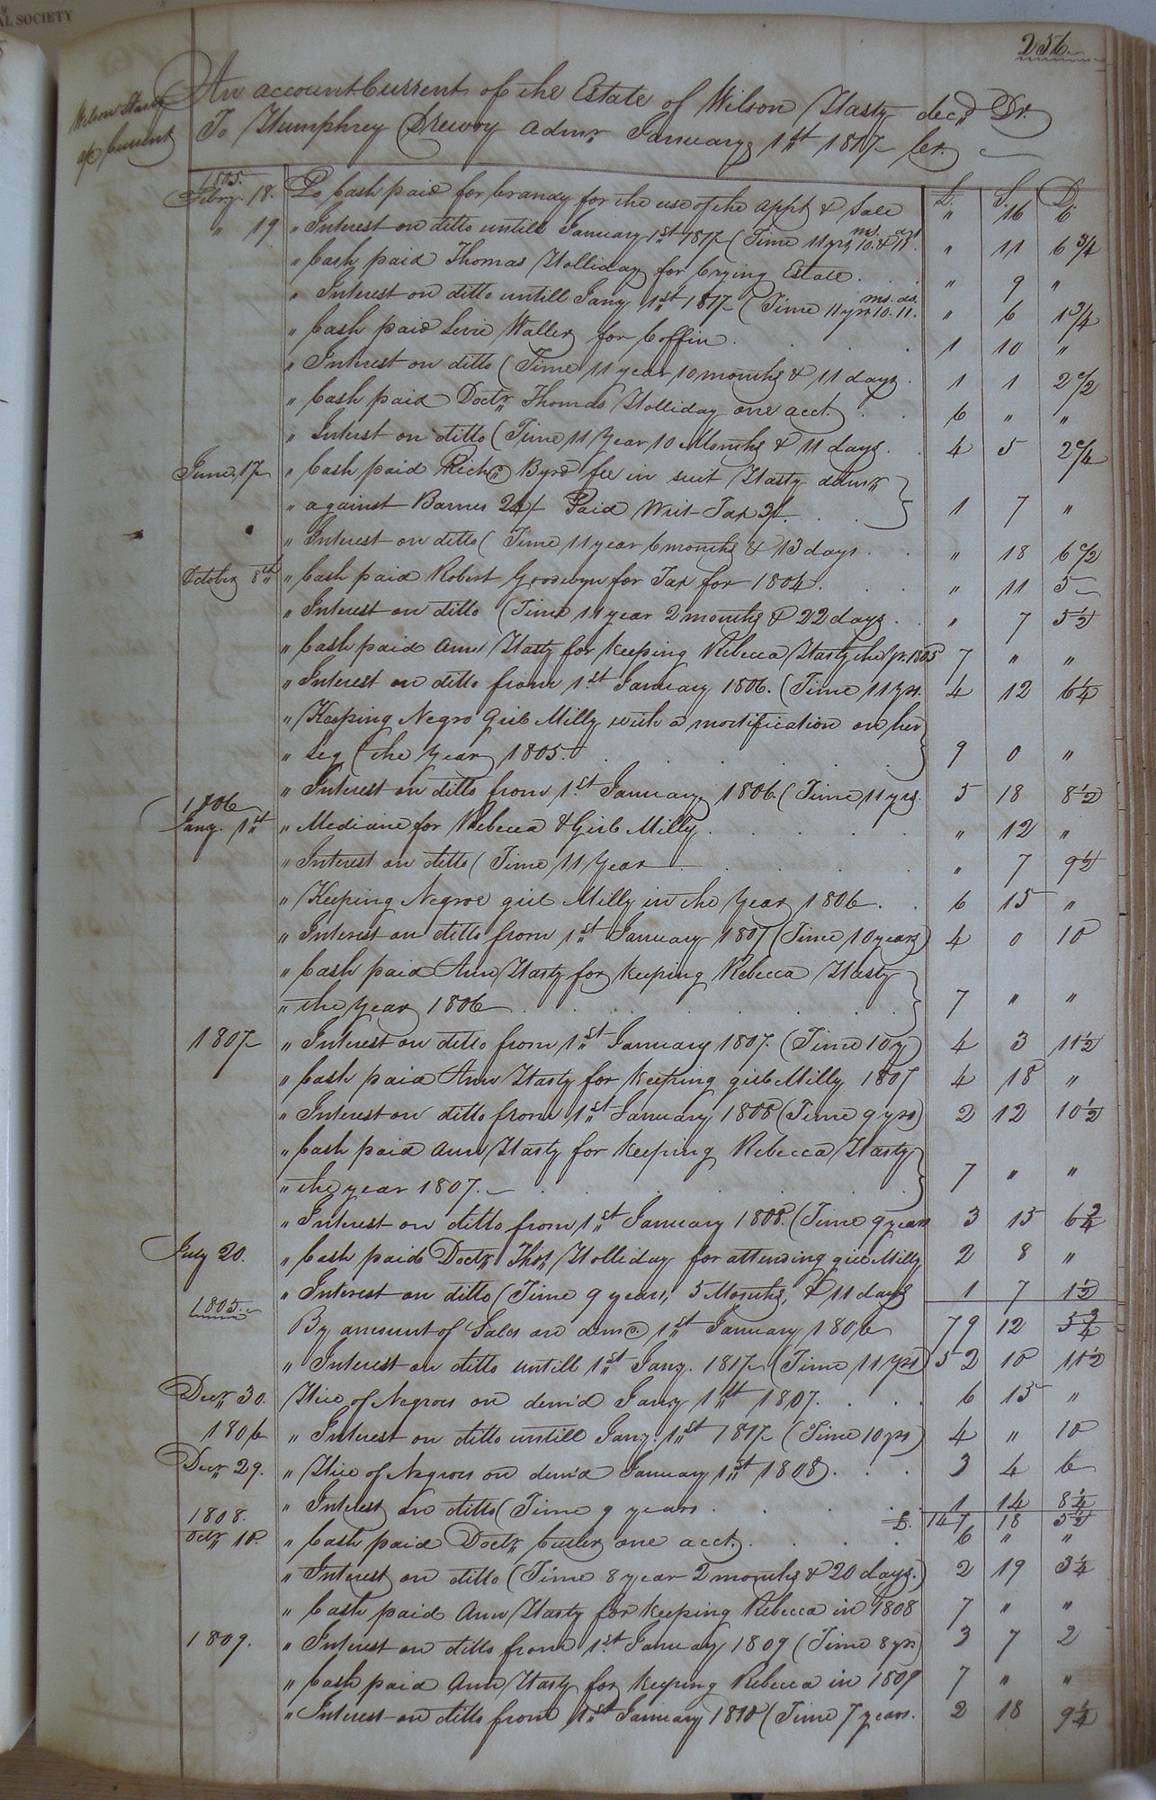 AL SOCIETY
256
Wilson Hasty
a/c Current
An account Current of the Estate of Wilson Hasty decd. Dr.
To Humphrey Drewry Admr. January 1st 1817 Cr.
£. S. D.
1805.
Feby. 18. To Cash paid for brandy for the use of the apprt & Sale " 16 6
" 19 " Interest on ditto untill January 1st 1817 (Time 11 yrs 10 ms. & 11 " 11 6 3/4
" Cash paid Thomas Holliday for Crying Estate . " 9 "
" Interest on ditto untill Jany. 1st 1817 (Time 11 yrs 10 ms. 11 ds. " 6 1 3/4
" Cash paid Waller for Coffin . . . 1 10 "
" Interest on ditto (Time 11 year, 10 months & 11 days . 1 1 2
" Cash paid Doctr. Thomas Holliday one acct. . . 6 " "
" Interst on ditto (Time 11 Year 10 Months & 11 days . 4 5 2
June 17 " Cash paid Richd. Byrd fee in suit Hasty admr
" against Barnes Paid Writ Tax . . 1 7 "
" Interest on ditto (Time 11 year 6 months & 13 days . " 18 6
October 8th " Cash paid Robert Goodwyn for Tax for 1804 . . " 11 5
" Interest on ditto (Time 11 year 2 months & 22 days . . " 7 5 1/2
" Cash paid Ann Hasty for keeping Rebecca Hasty the yr. 1805 7 " "
" Interest on ditto from 1st January 1806. (Time 11 yrs. 4 12 6 1/4
" Keeping Negro Girl Milly with a mortification on her
" Leg (the Year) 1805. . . . 9 0 "
" Interest on ditto from 1st January 1806 (Time 11 yrs. 5 18 8 1/2
1806
Jany. 1st " Medicine for Rebecca & Girl Milly . . . " 12 "
" Interest on ditto (Time 11 Year . . . " 7 9 1/2
" Keeping Negroe girl Milly in the Year 1806 . . 6 15 "
" Interest on ditto from 1st January 1807 (Time 10 years) 4 0 10
" Cash paid Ann Hasty for keeping Rebecca Hasty
" the year 1806 . . . 7 " "
1807 " Interest on ditto from 1st January 1807. (Time 10 y) 4 3 11 1/2
" Cash paid Ann Hasty for keeping girl Milly 1807 4 18 "
" Interest on ditto from 1st January 1808 (Time 9 yrs) 2 12 10 1/2
" Cash paid Ann Hasty for keeping Rebecca Hasty
" the year 1807. . . . 7 " "
" Interest on ditto from 1st January 1808. (Time 9 years 3 15 6 3/4
July 20. " Cash paid Doctr. Thos. Holliday for attending girl Milly 2 8 "
" Interest on ditto (Time 9 years, 5 Months, & 11 days 1 7 1 1/2
1805.
By amount of Sales on demd. 1st January 1806 79 12 5 3/4
" Interest on ditto untill 1st Jany. 1817 (Time 11 yrs) 52 10 11 1/2
Decr. 30. Hire of Negroes on demd Jany 1st 1807. . . . 6 15 "
1806 " Interest on ditto untill Jany. 1st 1817 (Time 10 yrs) 4 " 10
Decr. 29. " Hire of Negroes on demd January 1st 1808) . . . 3 4 6
" Interest on ditto (Time 9 years . . . 1 14 8 1/4
£. 147 18 5 1/2
1808.
Octr. 10. " Cash paid Doctr. Butler one acct. . . . 6 " "
" Interest on ditto (Time 8 year 2 months & 20 days.) 2 19 3 1/4
" Cash paid Ann Hasty for keeping Rebecca in 1808 7 " "
1809. " Interest on ditto from 1st January 1809 (Time 8 yrs) 3 7 2
" Cash paid Ann Hasty for keeping Rebecca in 1809 7 " "
" Interest on ditto from 1st January 1810 (Time 7 years. 2 18 9 1/4